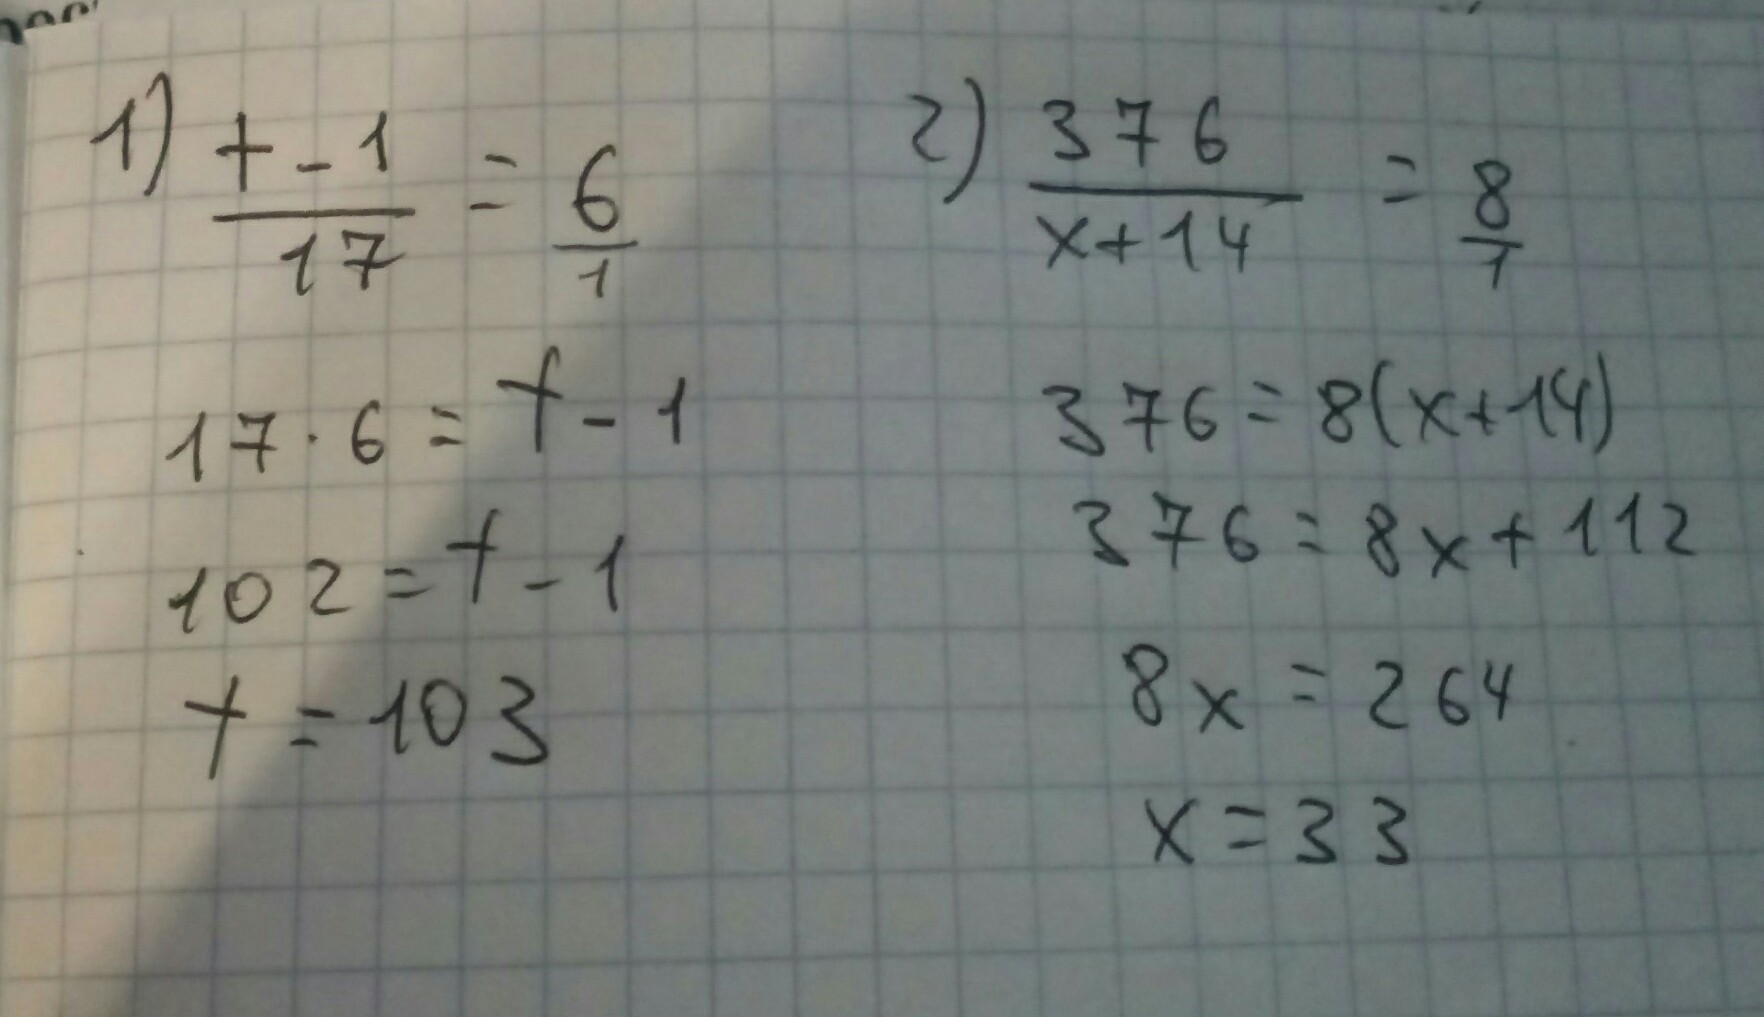 1) t-1/17 = 6/1
17·6 = t-1
102 = t-1
t = 103
2) 376/x+14 = 8/1
376 = 8(x+14)
376 = 8x+112
8x = 264
x = 33